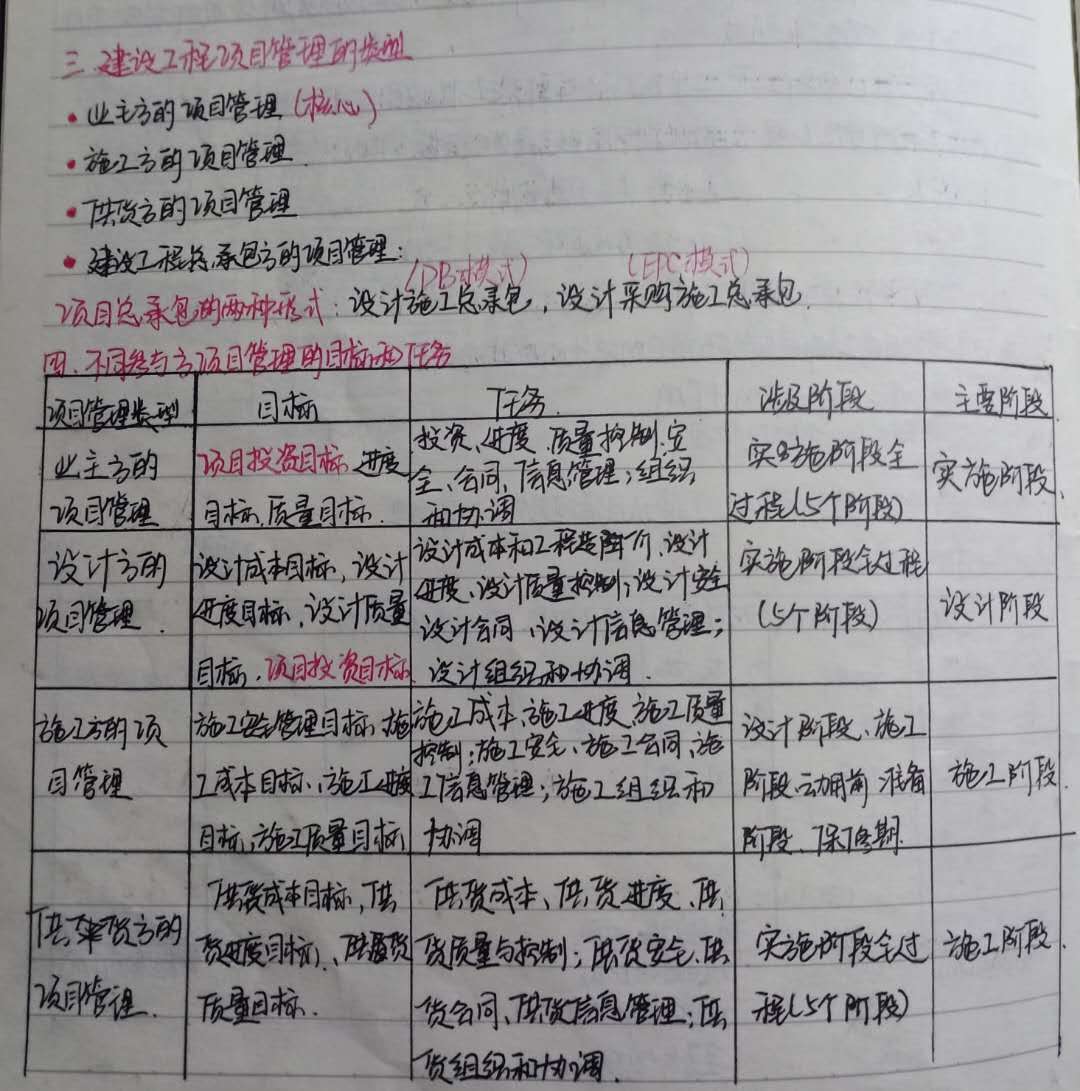 三.建设工程项目管理的类型
• 业主方的项目管理(核心)
• 施工方的项目管理.
• 供货方的项目管理
• 建设工程总承包方的项目管理:
(DB模式) (EPC模式)
项目总承包的两种形式:设计施工总承包,设计采购施工总承包.
四.不同参与方项目管理的目标和任务
项目管理类型 目标 任务. 涉及阶段 主要阶段
业主方的
项目管理
项目投资目标、进度
目标、质量目标.
投资、进度、质量控制;安
全、合同、信息管理;组织
和协调
实施阶段全
过程(5个阶段)
实施阶段.
设计方的
项目管理.
设计成本目标,设计
进度目标、设计质量
目标、项目投资目标
设计成本和工程造价、设计
进度、设计质量控制;设计安全
设计合同、设计信息管理;
设计组织和协调.
实施阶段全过程
(5个阶段)
设计阶段
施工方的项
目管理
施工安全管理目标、施
工成本目标、施工进度
目标、施工质量目标
施工成本、施工进度、施工质量
控制;施工安全、施工合同、施
工信息管理;施工组织和
协调
设计阶段、施工
阶段、动用前准备
阶段、保修期.
施工阶段.
供货方的
项目管理.
供货成本目标,供
货进度目标、供货
质量目标.
供货成本、供货进度、供
货质量与控制;供货安全、供
货合同、供货信息管理;供
货组织和协调.
实施阶段全过
程(5个阶段)
施工阶段.